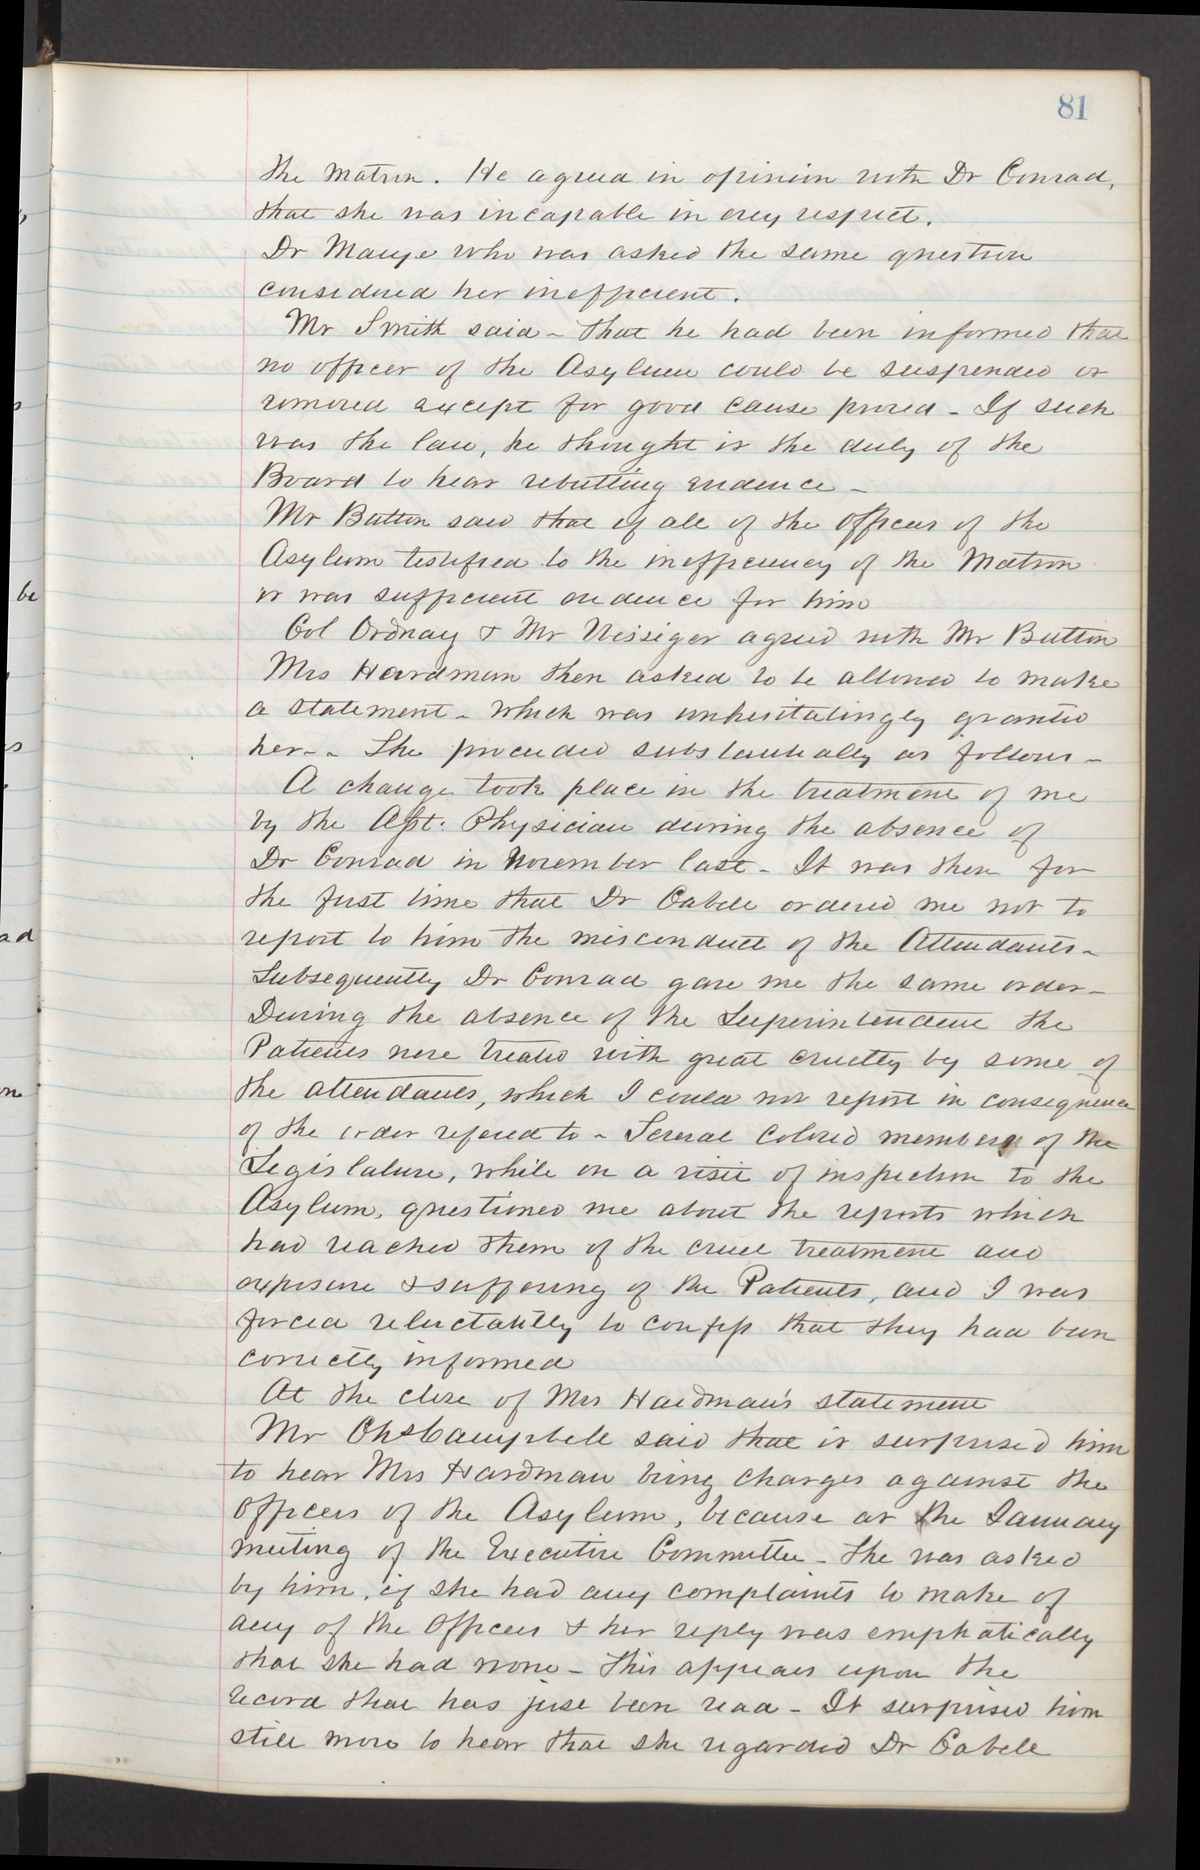 81
the Matron. He agreed in opinion with Dr Conrad,
that she was incapable in every respect.
Dr Mauze who was asked the same question
considered her inefficient.
Mr Smith said - that he had been informed that
no officer of the Asylum could be suspended or
removed except for good cause proved - If such
was the law, he thought it the duty of the
Board to hear rebutting evidence -
Mr Button said that if all of the officers of the
Asylum testified to the inefficiency of the Matron
it was sufficient evidence for him
Col Ordway & Mr Neisiger agreed with Mr Button
Mrs Hardman then asked to be allowed to make
a statement - which was unhesitatingly granted
her - . She proceeded substantially as follows -
A change took place in the treatment of me
by the Asst. Physician during the absence of
Dr Conrad in November last - It was then for
the first time that Dr Cabell ordered me not to
report to him the misconduct of the Attendants -
Subsequently Dr Conrad gave me the same order -
During the absence of the Superintendent the
Patients were treated with great cruelty by some of
the attendants, which I could not report in consequence
of the order refered to - Several Colored members of the
Legislature, while on a visit of inspection to the
Asylum, questioned me about the reports which
had reached them of the cruel treatment and
exposure & suffering of the Patients, and I was
forced reluctantly to confess that they had been
correctly informed
At the close of Mrs Hardman's statement
Mr Chs Campbell said that it surprised him
to hear Mrs Hardman bring charges against the
Officers of the Asylum, because at the January
meeting of the Executive Committee - She was asked
by him, if she had any complaints to make of
any of the Officers & her reply was emphatically
that she had none - this appears upon the
record that has just been read - It surprised him
still more to hear that she regarded Dr Cabell
be
ad